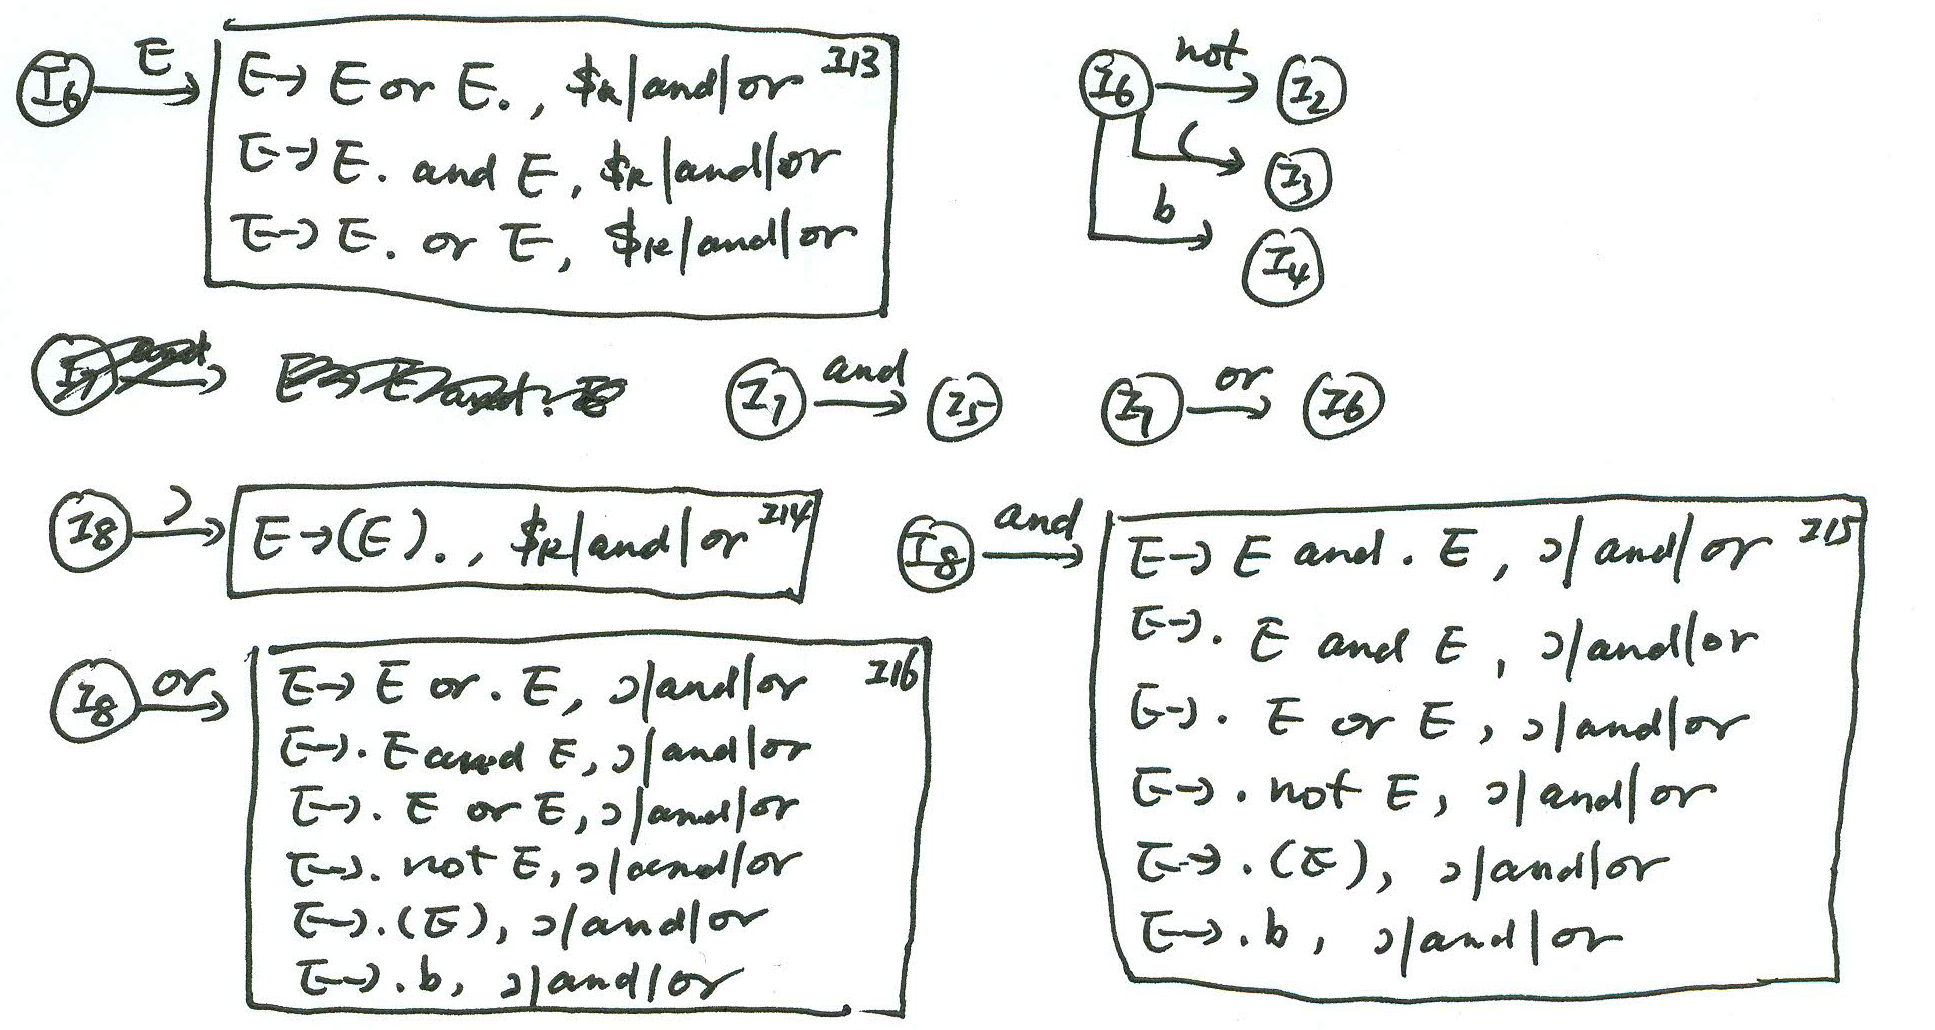 I6 E → E→ E or E. , $R/and/or I13
E→ E. and E, $R/and/or
E→ E. or E, $R/and/or
I6 not → I2
( → I3
b → I4
I7 and → I5
I7 or → I6
I8 ) → E→(E). , $R/and/or I14
I8 and → E→ E and . E, )/and/or I15
E→. E and E, )/and/or
E→. E or E, )/and/or
E→. not E, )/and/or
E→. (E), )/and/or
E→. b, )/and/or
I8 or → E→ E or . E, )/and/or I16
E→. E and E, )/and/or
E→. E or E, )/and/or
E→. not E, )/and/or
E→. (E), )/and/or
E→. b, )/and/or